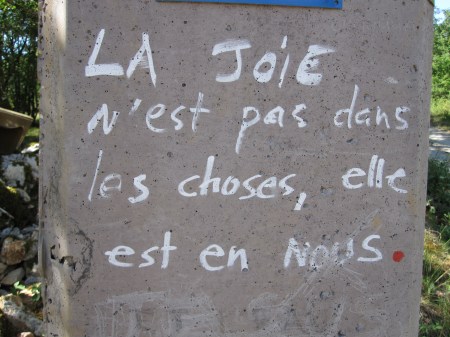 LA JOiE
N'est pas dans
les choses, elle
est en NOUS.